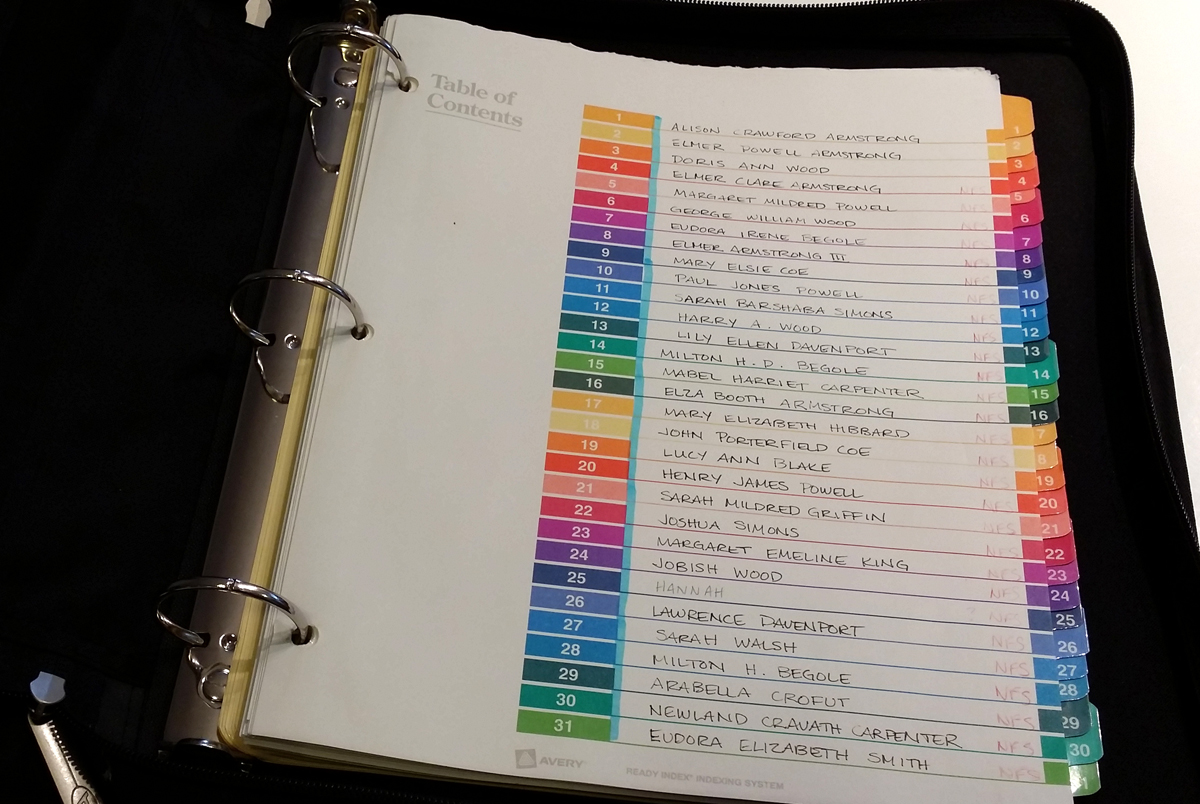 Table of
Contents
1 ALISON CRAWFORD ARMSTRONG 1
2 ELMER POWELL ARMSTRONG 2
3 DORIS ANN WOOD 3
4 ELMER CLARE ARMSTRONG NFS 4
5 MARGARET MILDRED POWELL NFS 5
6 GEORGE WILLIAM WOOD NFS 6
7 EUDORA IRENE BEGOLE NFS 7
8 ELMER ARMSTRONG III NFS 8
9 MARY ELSIE COE NFS 9
10 PAUL JONES POWELL NFS 10
11 SARAH BARSHABA SIMONS NFS 11
12 HARRY A. WOOD NFS 12
13 LILY ELLEN DAVENPORT NFS 13
14 MILTON H. D. BEGOLE NFS 14
15 MABEL HARRIET CARPENTER NFS 15
16 ELZA BOOTH ARMSTRONG NFS 16
17 MARY ELIZABETH HIBBARD NFS 7
18 JOHN PORTERFIELD COE NFS 8
19 LUCY ANN BLAKE NFS 19
20 HENRY JAMES POWELL NFS 20
21 SARAH MILDRED GRIFFIN NFS 21
22 JOSHUA SIMONS NFS 22
23 MARGARET EMELINE KING NFS 23
24 JOBISH WOOD NFS 24
25 HANNAH ? NFS 25
26 LAWRENCE DAVENPORT NFS 26
27 SARAH WALSH NFS 27
28 MILTON H. BEGOLE NFS 28
29 ARABELLA CROFUT NFS 29
30 NEWLAND CRAVATH CARPENTER NFS 30
31 EUDORA ELIZABETH SMITH NFS 1
AVERY® READY INDEX® INDEXING SYSTEM